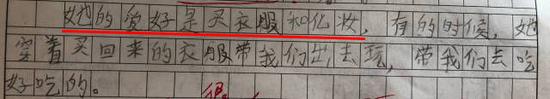 她的爱好是买衣服和化妆，有的时候，她
穿着买回来的衣服带我们出去玩，带我们去吃
好吃的。